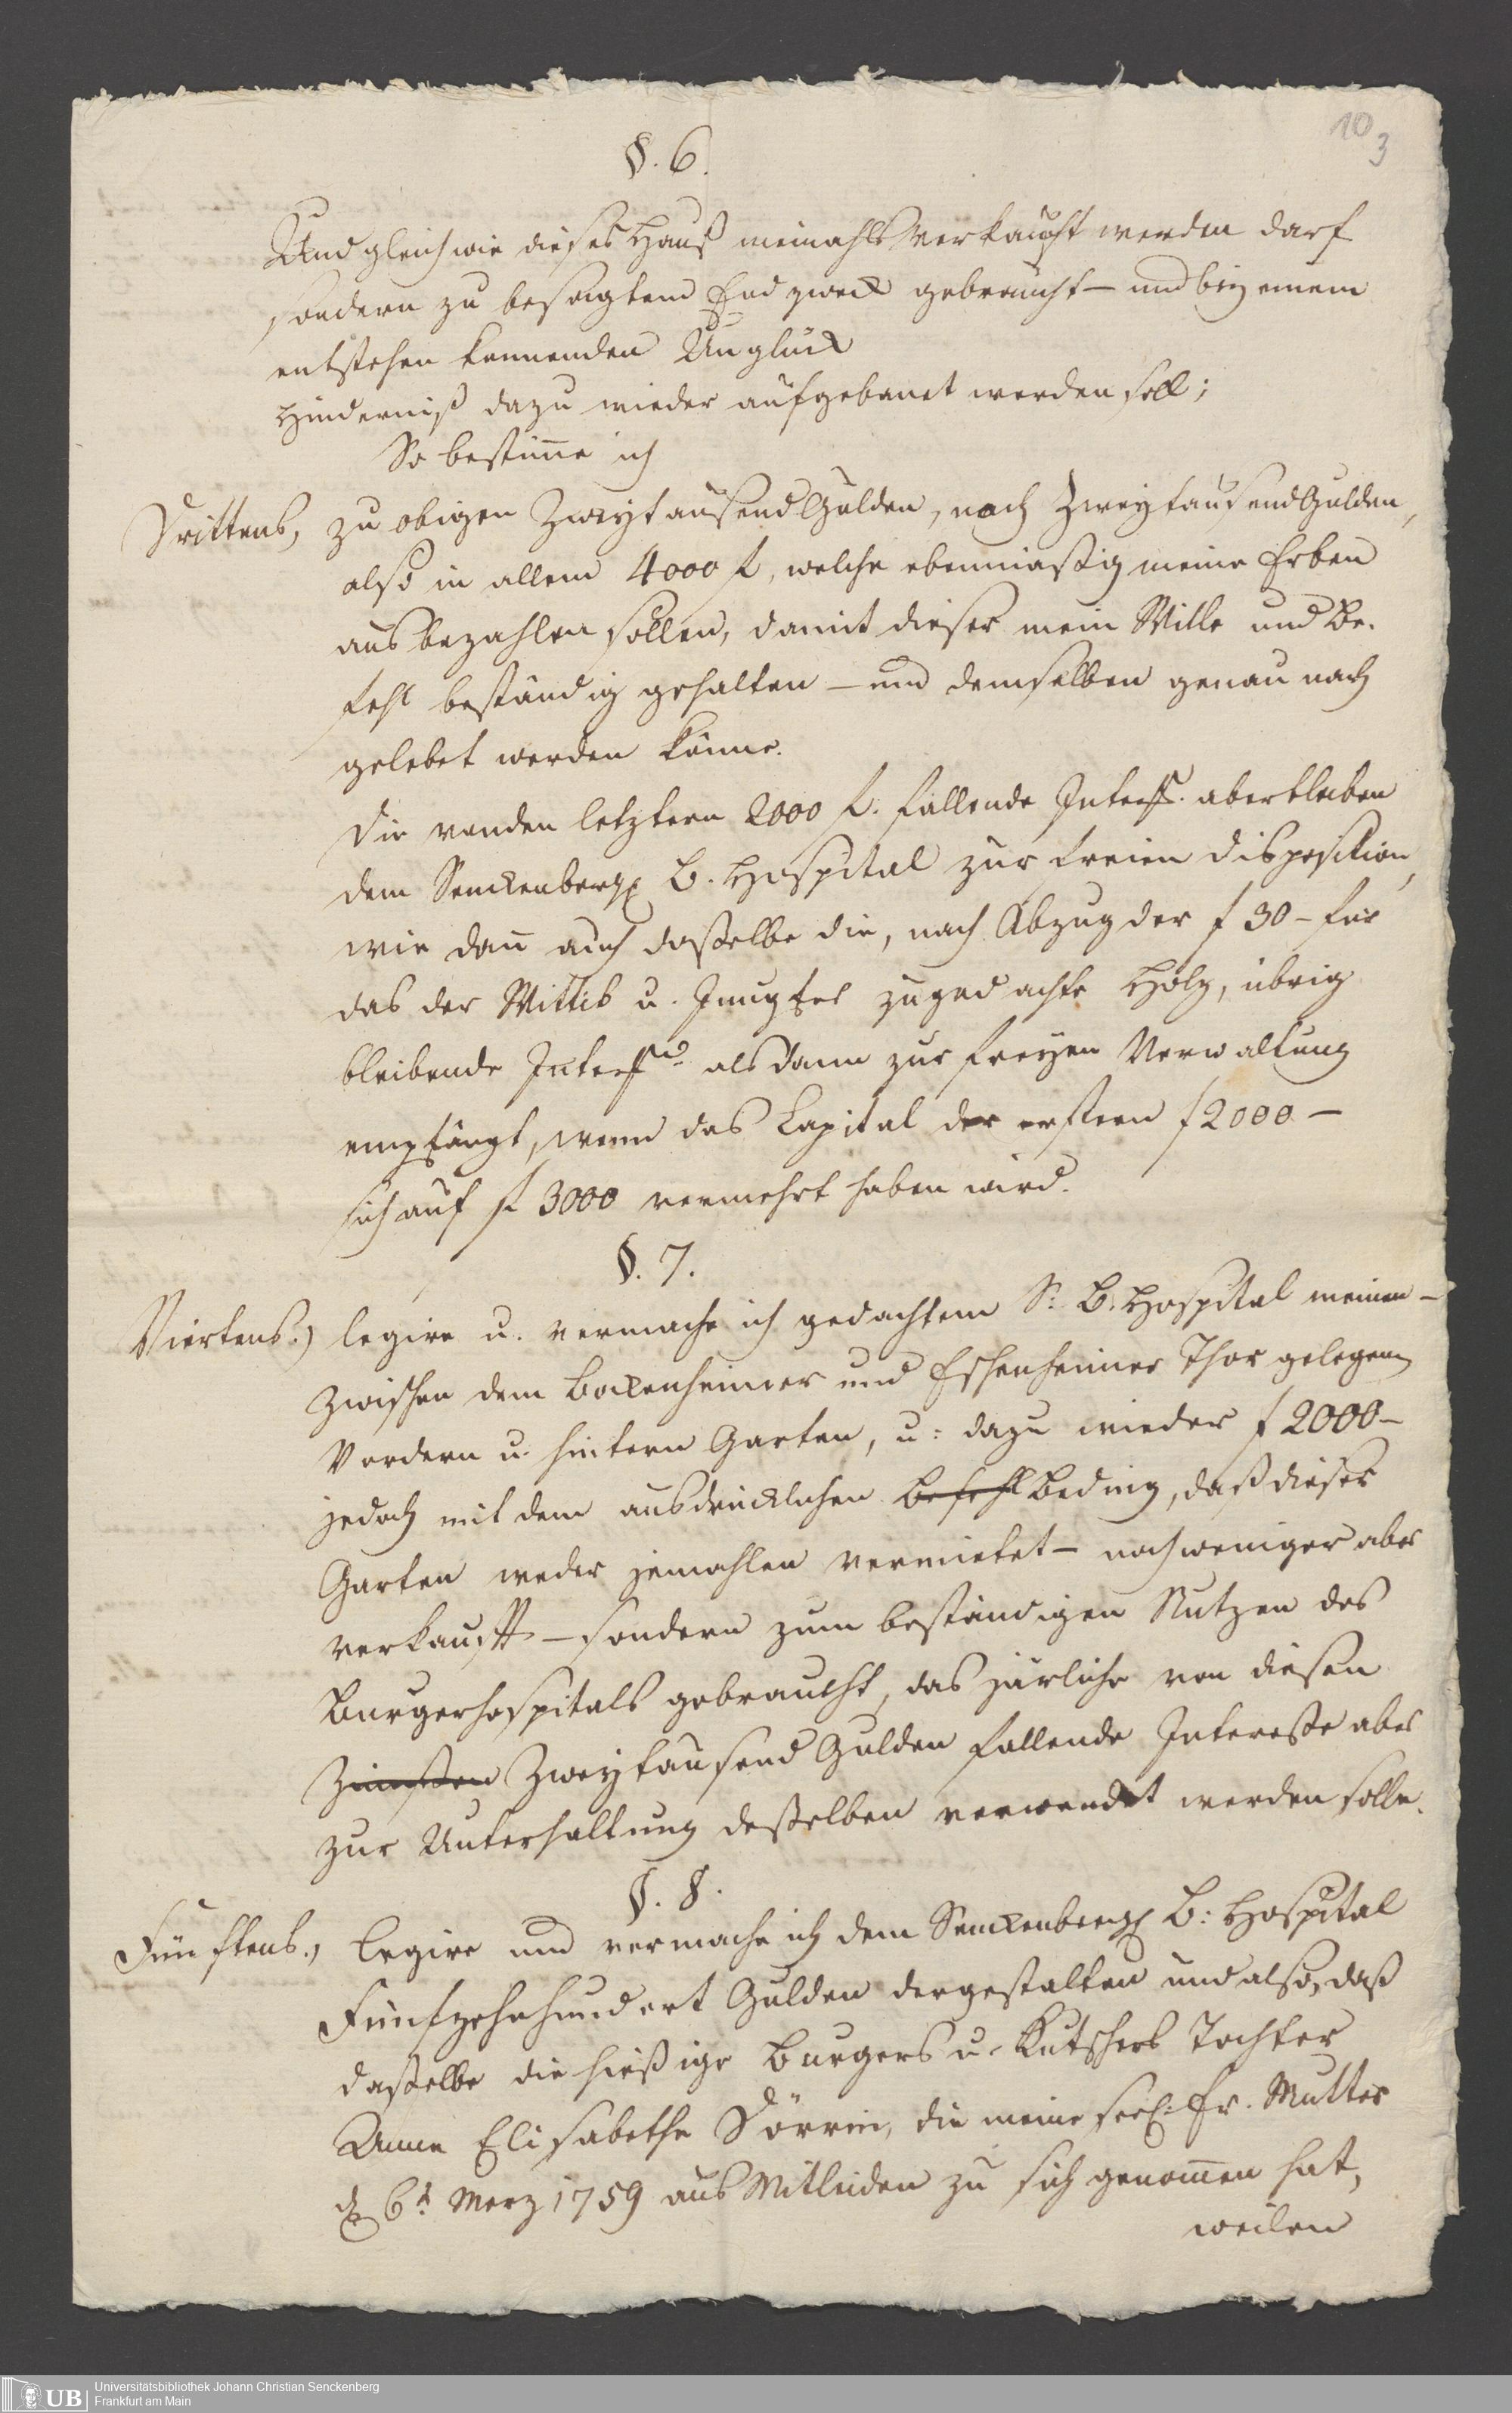 10
3
§. 6.
Und gleich wie dieses Hauß niemahls verkaufft werden darf
sondern zu besagtem Endzweck gebraucht – und bey einem
entstehen kennenden Unglück
Hinderniß dazu wieder aufgebauet werden soll;
So bestim̅e ich
Drittens, zu obigen Zweytausend Gulden, noch Zweytausend Gulden,
also in allem 4000 f, welche ebenmäßig meine Erben
ausbezahlen sollen, damit dieser mein Wille und Be-
fehl beständig gehalten – und demselben genau nach
gelebet werden könne.
Die von den letztern 2000 f. fallende Interess. aber bleiben
dem Senckenberg. B. Hospital zur freien disposition,
wie dan̅ auch dasselbe die, nach Abzug der f 30 – für
das der Wittib u. Jungfer zugedachte Holz, übrig
bleibende Interess. alsdann zur freyen Verwaltung
empfängt, wenn das Capital der erstern f 2000 –
sich auf f 3000 vermehrt haben wird.
§. 7.
Viertens.) legire u. vermache ich gedachtem S: B. Hospital meinen –
zwischen dem Bockenheimer und Eschenheimer Thor gelegen
Vordern u. hintern Garten, u: dazu wieder f 2000 –
jedoch mit dem ausdrücklichen Befehl Beding, daß dieser
Garten weder jemahlen vermietet – noch weniger aber
verkaufft – sondern zum beständigen Nutzen des
Burgerhospitals gebraucht, das järliche von diesen
Zweytausend Gulden fallende Interesse aber
zur Unterhaltung desselben verwendet werden solle.
§. 8.
Fünftens., legire und vermache ich dem Senckenberg. B: Hospital
Fünfzehnhundert Gulden dergestalten und also, daß
dasselbe die hießige Burgers u. Kutschers Tochter
Anne Elisabethe Dörrin, die meine seel: Fr. Mutter
d. 6t Merz 1759 aus Mitleiden zu sich genom̅en hat,
weilen
UB
Universitätsbibliothek Johann Christian Senckenberg
Frankfurt am Main